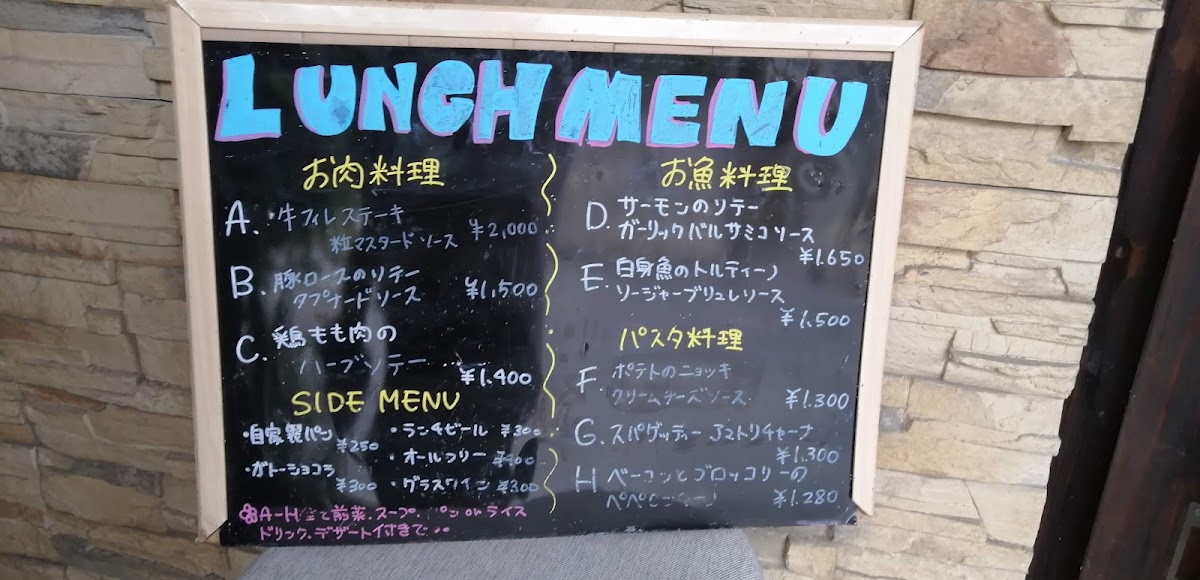 LUNCH MENU
お肉料理
A.・牛フィレステーキ
粒マスタードソース ¥2,000
B.豚ロースのソテー
タプナードソース ¥1,500
C.鶏もも肉の
ハーブソテー
¥1.400
SIDE MENU
・自家製パン
¥250
・ガトーショコラ
¥300
・ランチビール ¥300
・オールフリー ¥400
・グラスワイン ¥300
A-H全て前菜.スープ.パンorライス
ドリンク.デザート付きで
お魚料理
D.サーモンのソテー
ガーリックバルサミコソース
¥1.650
E.白身魚のトルティーノ
ソージャーブリュレソース
¥1.500
パスタ料理
F.ポテトのニョッキ
クリームチーズソース ¥1.300
G.スパゲッティー アマトリチャーナ
¥1.300
H ベーコンとブロッコリーの
¥1.280